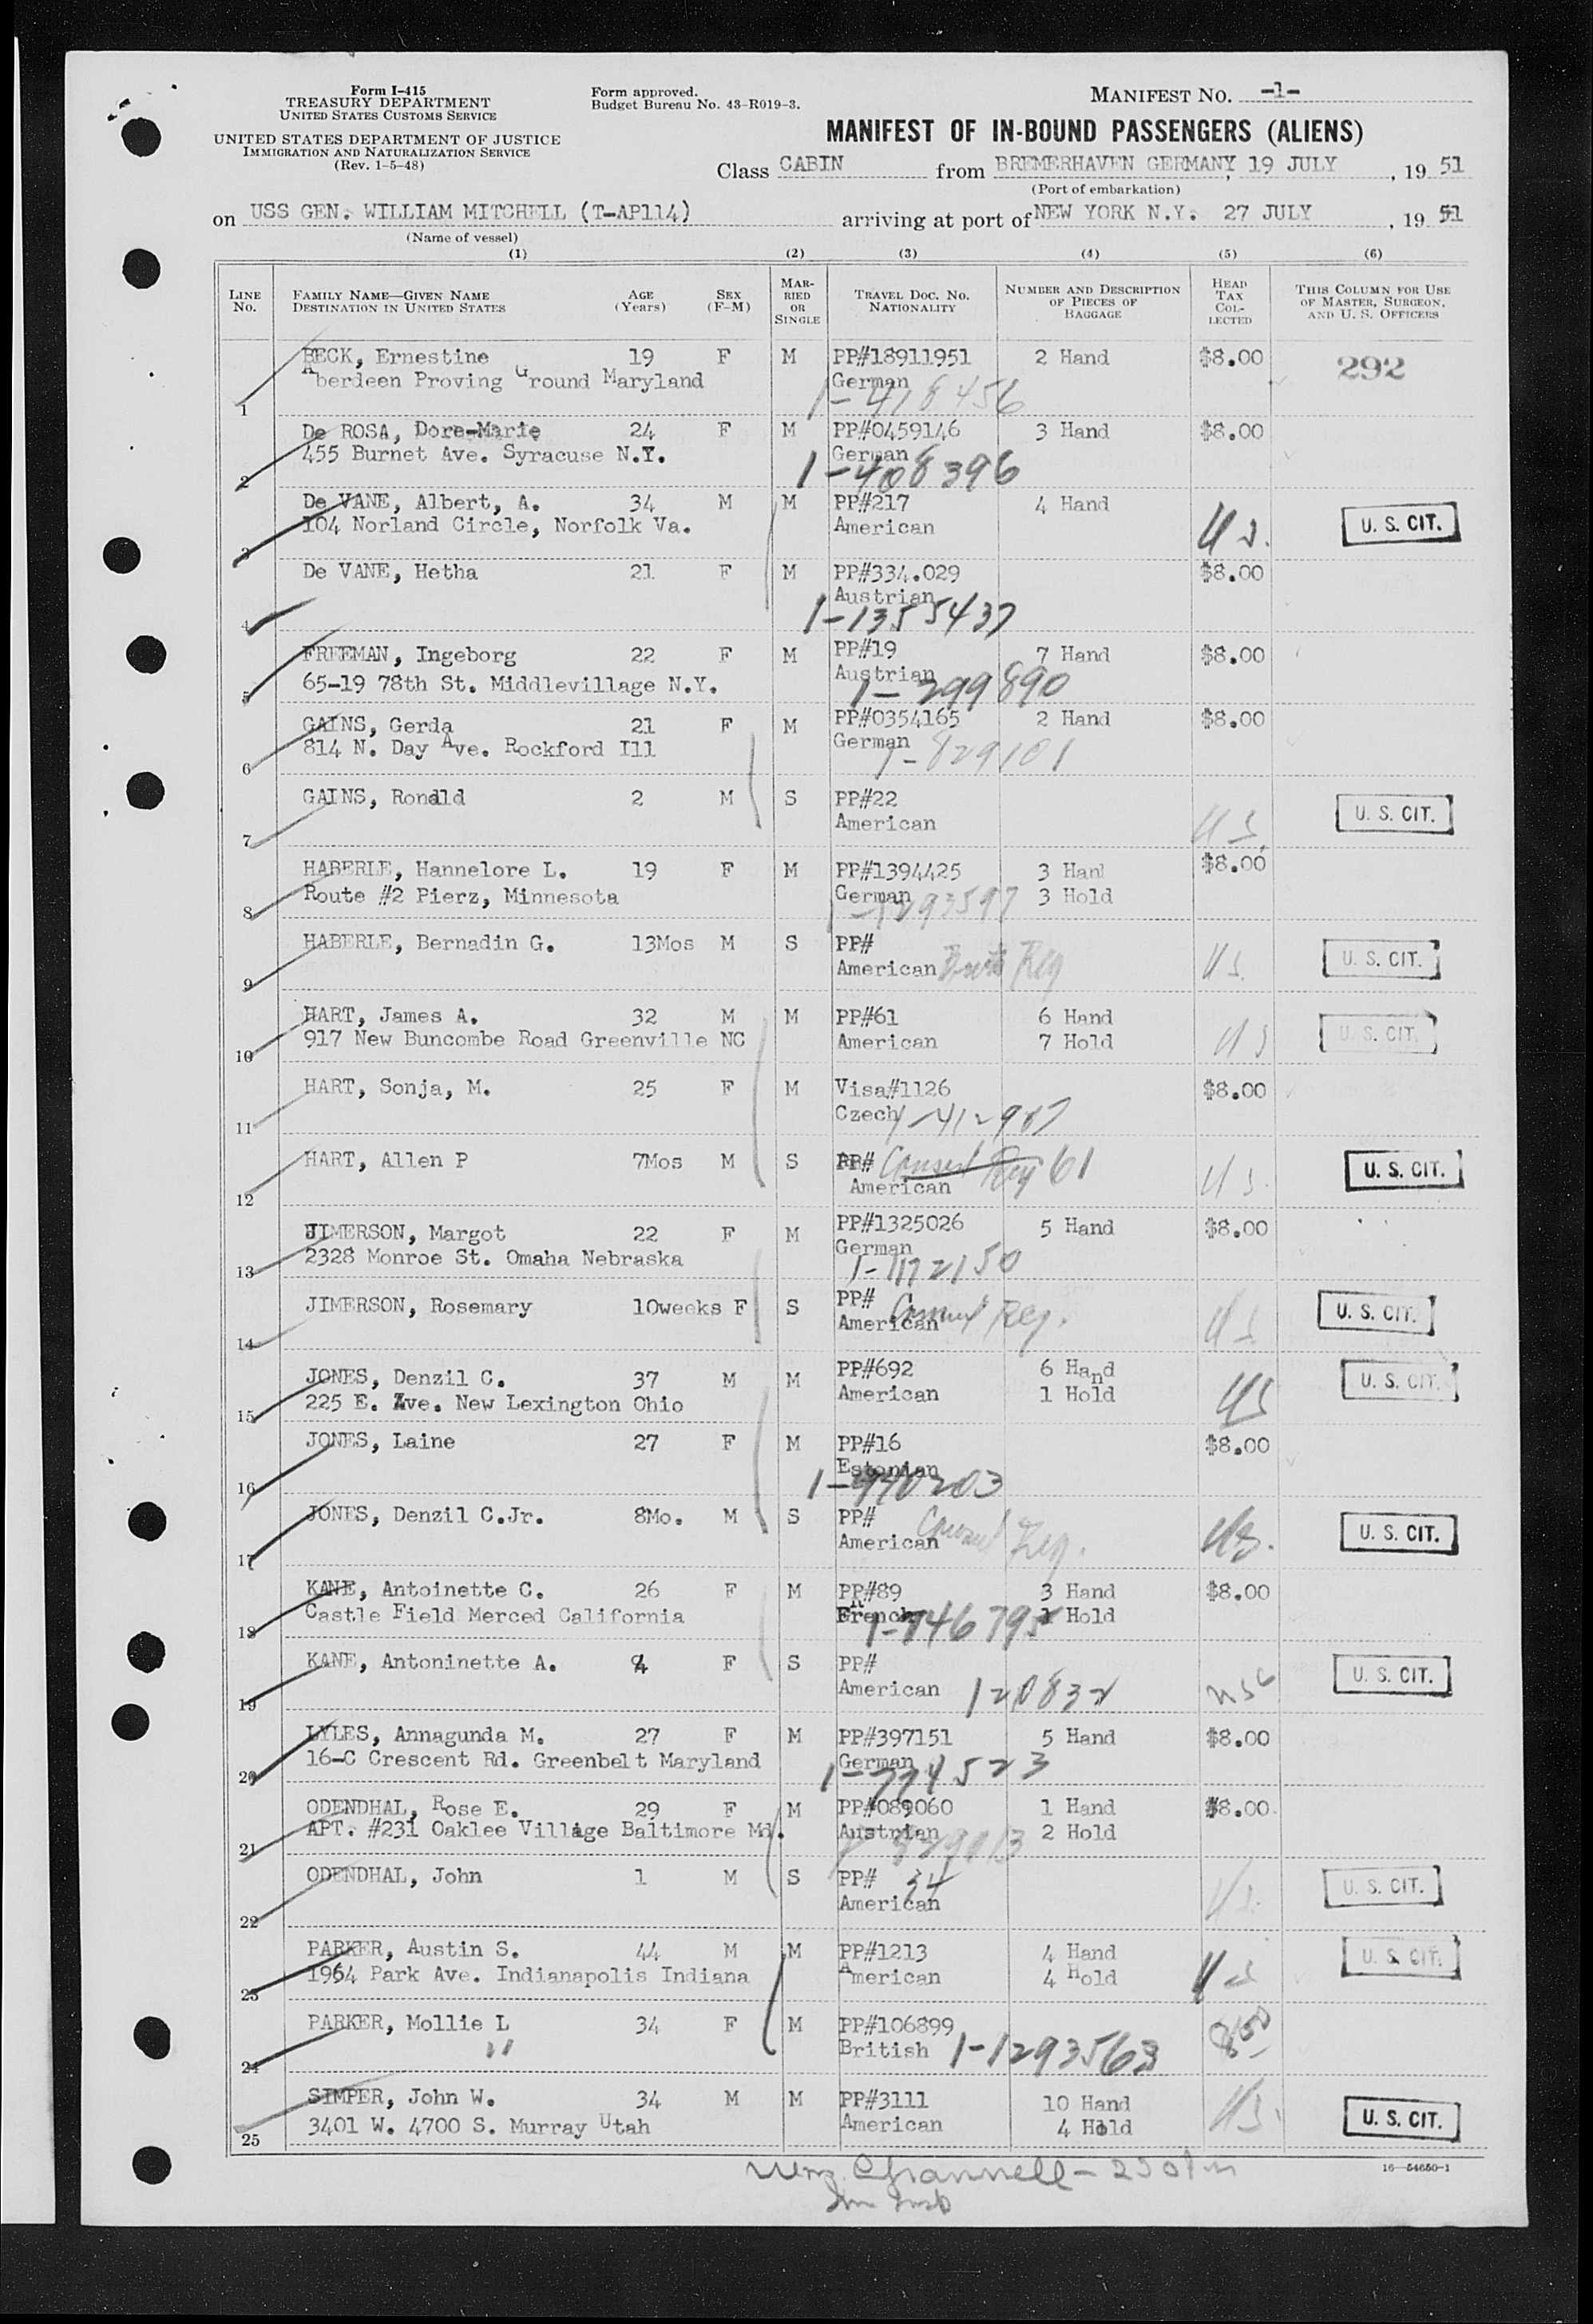 Form I-415
TREASURY DEPARTMENT
UNITED STATES CUSTOMS SERVICE
UNITED STATES DEPARTMENT OF JUSTICE
IMMIGRATION AND NATURALIZATION SERVICE
(Rev. 1-5-48)
Form approved.
Budget Bureau No. 43-R019-3.
MANIFEST NO. -1-
MANIFEST OF IN-BOUND PASSENGERS (ALIENS)
Class CABIN from BREMERHAVEN GERMANY, 19 JULY, 19 51
(Port of embarkation)
on USS GEN. WILLIAM MITCHELL (T-AP114) arriving at port of NEW YORK N.Y. 27 JULY, 19 51
(Name of vessel)
(1) (2) (3) (4) (5) (6)
LINE NO. FAMILY NAME—GIVEN NAME DESTINATION IN UNITED STATES AGE (Years) SEX (F-M) MARRIED OR SINGLE TRAVEL DOC. NO. NATIONALITY NUMBER AND DESCRIPTION OF PIECES OF BAGGAGE HEAD TAX COLLECTED THIS COLUMN FOR USE OF MASTER, SURGEON, AND U. S. OFFICERS
BECK, Ernestine 19 F M PP#18911951 2 Hand $8.00 292
Aberdeen Proving Ground Maryland German
1 1-418456
De ROSA, Dore-Marie 24 F M PP#0459146 3 Hand $8.00
455 Burnet Ave. Syracuse N.Y. German
2 1-408396
De VANE, Albert, A. 34 M M PP#217 4 Hand
104 Norland Circle, Norfolk Va. American US. U. S. CIT.
3
De VANE, Hetha 21 F M PP#334.029 $8.00
Austrian
4 1-1355437
FREEMAN, Ingeborg 22 F M PP#19 7 Hand $8.00
65-19 78th St. Middlevillage N.Y. Austrian
5 1-399890
GAINS, Gerda 21 F M PP#0354165 2 Hand $8.00
814 N. Day Ave. Rockford Ill German
6 1-829101
GAINS, Ronald 2 M S PP#22 U. S. CIT.
American US
7
HABERLE, Hannelore L. 19 F M PP#1394425 3 Hand $8.00
Route #2 Pierz, Minnesota German 3 Hold
8 1-1293597
HABERLE, Bernadin G. 13Mos M S PP# U. S. CIT.
American Birth Reg US.
9
HART, James A. 32 M M PP#61 6 Hand U. S. CIT.
917 New Buncombe Road Greenville NC American 7 Hold US
10
HART, Sonja, M. 25 F M Visa#1126 $8.00
Czech 1-412987
11
HART, Allen P 7Mos M S PP# Consul Reg 61 U. S. CIT.
American US.
12
JIMERSON, Margot 22 F M PP#1325026 5 Hand $8.00
2328 Monroe St. Omaha Nebraska German
13 1-1172150
JIMERSON, Rosemary 10weeks F S PP# Consul Reg. U. S. CIT.
American US
14
JONES, Denzil C. 37 M M PP#692 6 Hand U. S. CIT.
225 E. Ave. New Lexington Ohio American 1 Hold US
15
JONES, Laine 27 F M PP#16 $8.00
Estonian
16 1-940203
JONES, Denzil C.Jr. 8Mo. M S PP# Consul Reg. U. S. CIT.
American US.
17
KANE, Antoinette C. 26 F M PP#89 3 Hand $8.00
Castle Field Merced California French 1 Hold
18
KANE, Antoninette A. 4 F S PP# U. S. CIT.
American 120832 USC
19
LYLES, Annagunda M. 27 F M PP#397151 5 Hand $8.00
16-C Crescent Rd. Greenbelt Maryland German
20 1-774523
ODENDHAL, Rose E. 29 F M PP#089060 1 Hand $8.00
APT. #231 Oaklee Village Baltimore Md. Austrian 2 Hold
21
ODENDHAL, John 1 M S PP# 34 U. S. CIT.
American US.
22
PARKER, Austin S. 44 M M PP#1213 4 Hand U. S. CIT.
1964 Park Ave. Indianapolis Indiana American 4 Hold US
23
PARKER, Mollie L 34 F M PP#106899 8.00
" British 1-1293563
24
SIMPER, John W. 34 M M PP#3111 10 Hand US.
3401 W. 4700 S. Murray Utah American 4 Hold U. S. CIT.
25
16—54650-1
Channell-
Im Insp